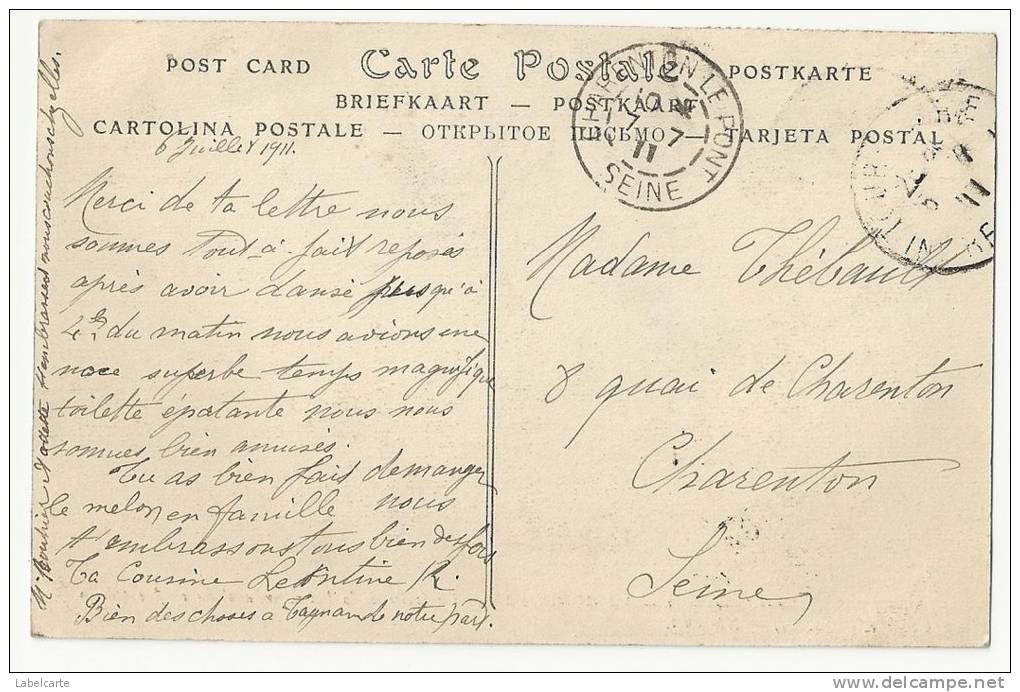 POST CARD Carte Postale POSTKARTE
BRIEFKAART — POSTKAART
CARTOLINA POSTALE — ОТКРЫТОЕ ПИСЬМО — TARJETA POSTAL
CHARENTON LE PONT
10
7 - 7
11
SEINE
11
6 Juillet 1911.
Merci de ta lettre nous
sommes tout à fait reposés
après avoir dansé jusqu'à
4h du matin nous avions une
noce superbe temps magnifique
toilette épatante nous nous
sommes bien amusés.
Tu as bien fait de manger
le melon en famille nous
t'embrassons tous bien des fois
Ta Cousine Leontine R.
Bien des choses a de notre part.
Madame Thébault
8 quai de Charenton
Charenton
Seine
Labelcarte
http://labelcarte.delcampe.net